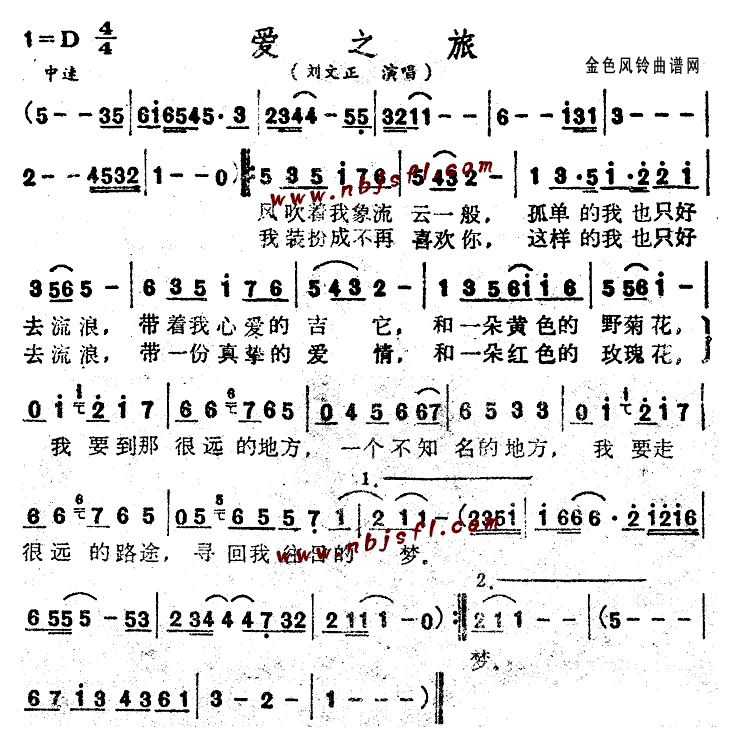 1=D 4/4 爱之旅
中速 (刘文正 演唱) 金色风铃曲谱网
(5--35|6i6545·3|2344-55|3211--|6--i31|3---|
2--4532|1--0)‖:535i76|5432-|13·5i·22i|
www.nbjsfl.com
风吹着我象流云一般，孤单的我也只好
我装扮成不再喜欢你，这样的我也只好
3565-|635i76|5432-|1356ii6|556i-|
去流浪，带着我心爱的吉它，和一朵黄色的野菊花，
去流浪，带一份真挚的爱情，和一朵红色的玫瑰花，
0i2i7|66765|045667|6533|0i2i7|
我要到那很远的地方，一个不知名的地方，我要走
1.
66765|056557·1|211-(235i|i666·2i2i6|
很远的路途，寻回我往日的梫梦。
www.nbjsfl.com
2.
6555-53|23444732|2111-0):‖211--|(5---|
梦。
67i34361|3-2-|1---)‖